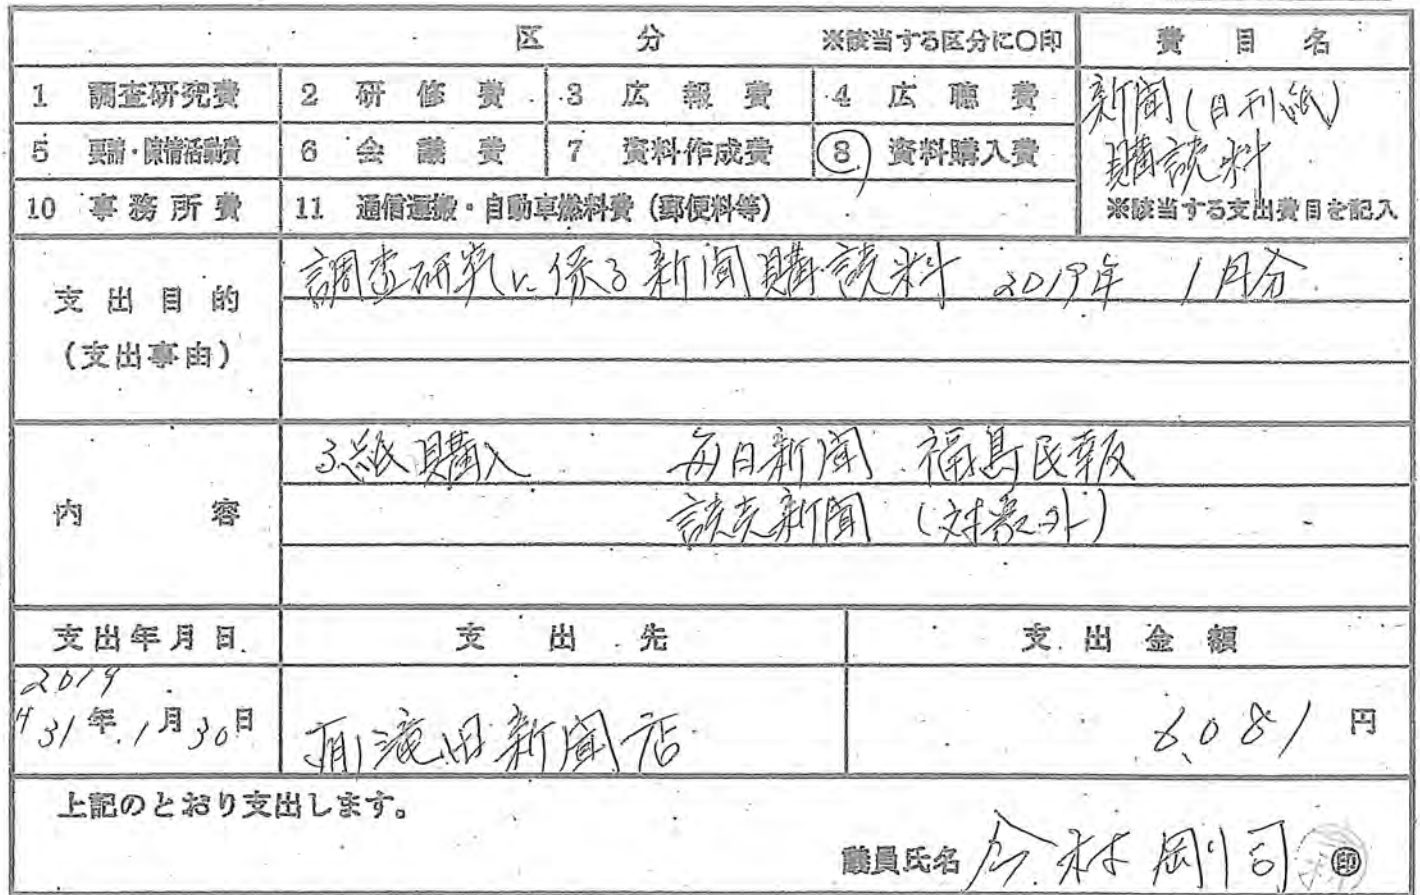 区 分 ※該当する区分に○印 費 目 名
1 調査研究費 2 研 修 費 3 広 報 費 4 広 聴 費
5 要請・陳情活動費 6 会 議 費 7 資料作成費 8 資料購入費
10 事 務 所 費 11 通信運搬・自動車燃料費(郵便料等)
新聞(日刊紙)
購読料
※該当する支出費目を記入
支 出 目 的
(支出事由)
調査研究に係る新聞購読料 2019年 1月分
内 容
3紙購入 毎日新聞 福島民報
読売新聞 (対象外)
支出年月日 支 出 先 支 出 金 額
2019
H31年1月30日 新聞店 6,081円
上記のとおり支出します。
議員氏名 今村剛司 ㊞